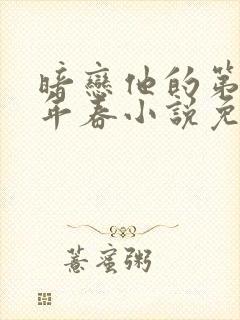 暗戀他的第
年春小說免
薏蜜粥